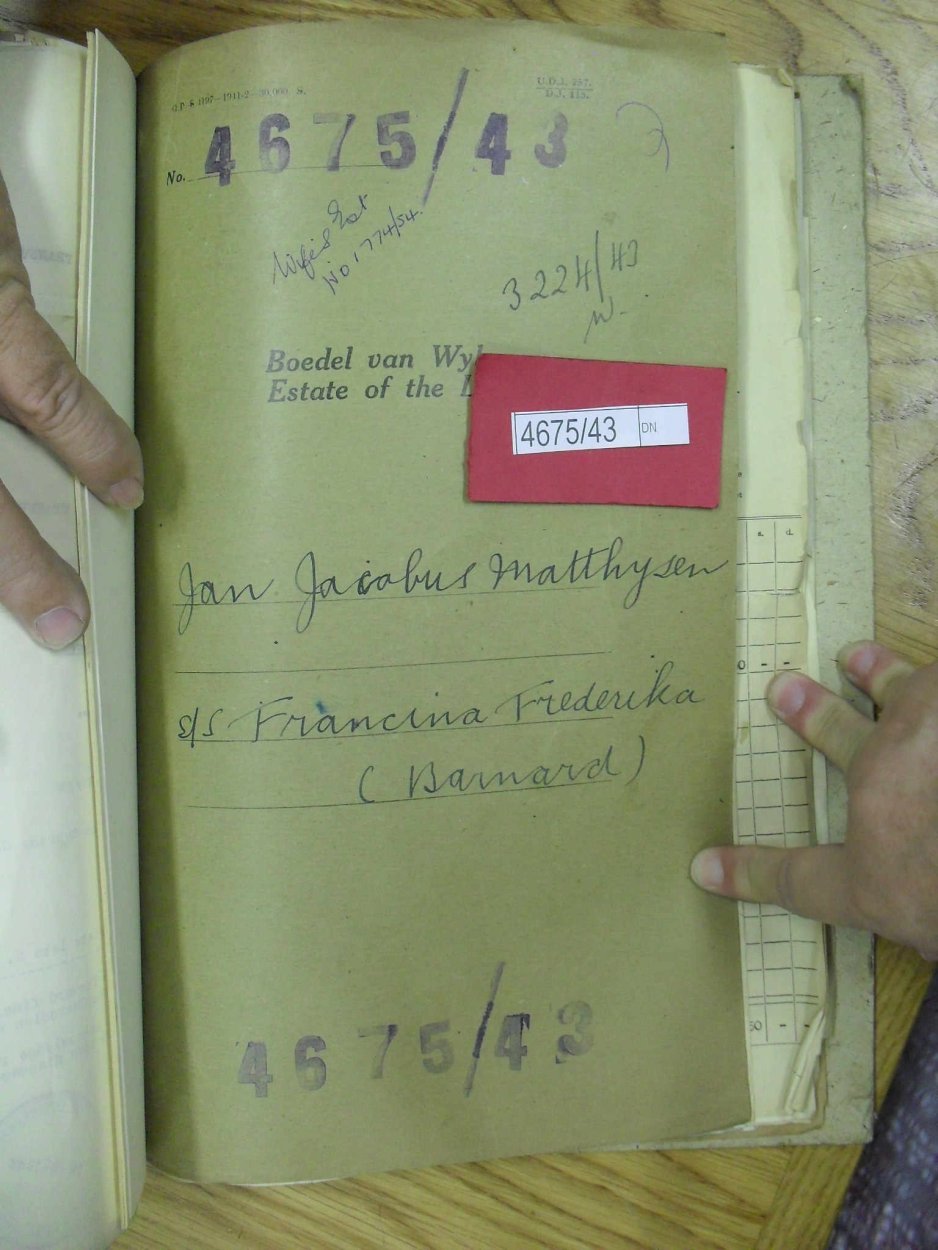 G.P.-S.1197—1941-2—30,000. S.
U.D.J. 257.
D.J. 113.
No. 4675/43
Wife's Est
No 1774/54.
3224/43
Boedel van Wyl
Estate of the L
4675/43 DN
Jan Jacobus Matthysen
s/s Francina Frederika
(Barnard)
4675/43
s. d.
0 - -
50 - -